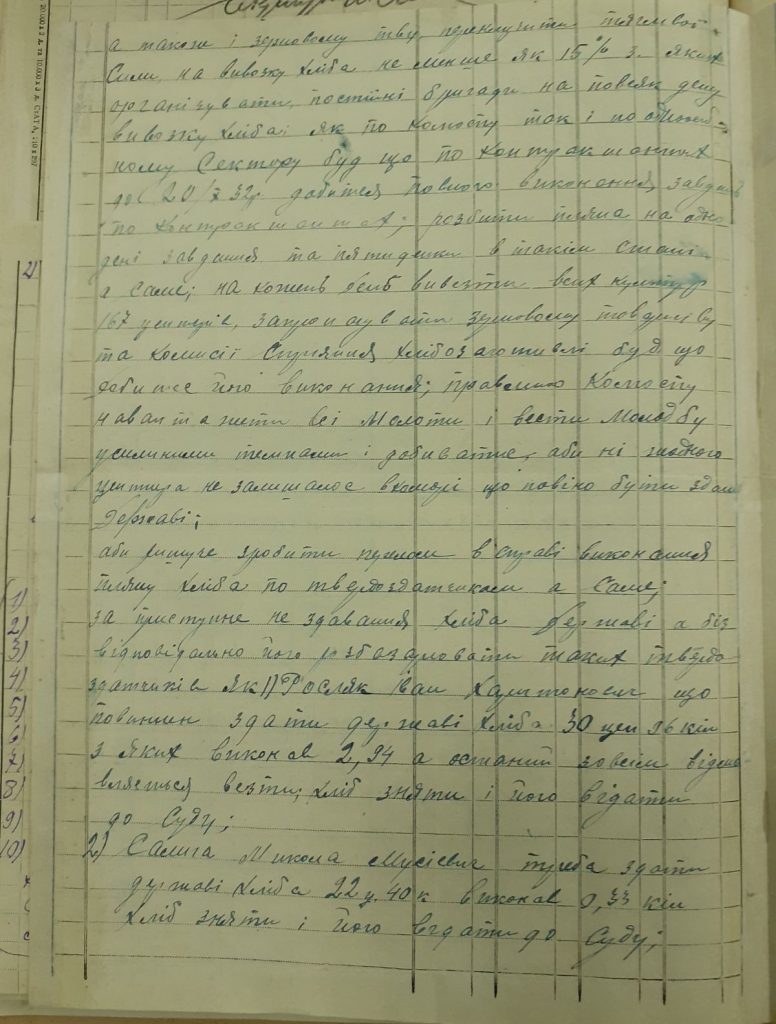 а також і зерновому тву переключити тяглової
Сили на вивозку хліба не менше як 15% з яких
організувати постійні бригади на повсяк дену
вивозку хліба; як по колосту так і по одноосіб-
ному Сектору буд що по контрактантах
до 20/X 32р. добитися повного виконання, завдань
по контрактантах; розбити пляна на одно
дені завдання та пятиденки в такім стані
а саме; на кожень день вивезти всих культур
167 центнерів, запропонувати зерновому товариству
та комисії Сприяння хлібозаготивлі буд що
добитися його виконання; правлінню Колосту
навантажити всі молотки і вести молодбу
усиленими темпами і добиватись, аби ні жодного
центнера не залишалос в коморі що повіно бути здано
Державі;
аби рішуче зробити перелом в справі виконання
пляну хліба по твердоздатчикам а Саме;
за приступне не здавання хліба державі а біз
відповідально його розбазарювати таких твердо
здатчиків як 1) Росляк Іван Харитонович що
повинен здати державі хліба 30 цен 96 кіл
з яких виконав 2,94 а останий зовсім відмо-
вляється везти; хліб зняти і його відати
до Суду;
2) Салига Микола Мусієвич треба здати
державі хліба 22 ц. 40 к виконав 0,33 кіл
хліб зняти і його відати до Суду;
1)
2)
3)
4)
5)
6)
7)
8)
9)
10)